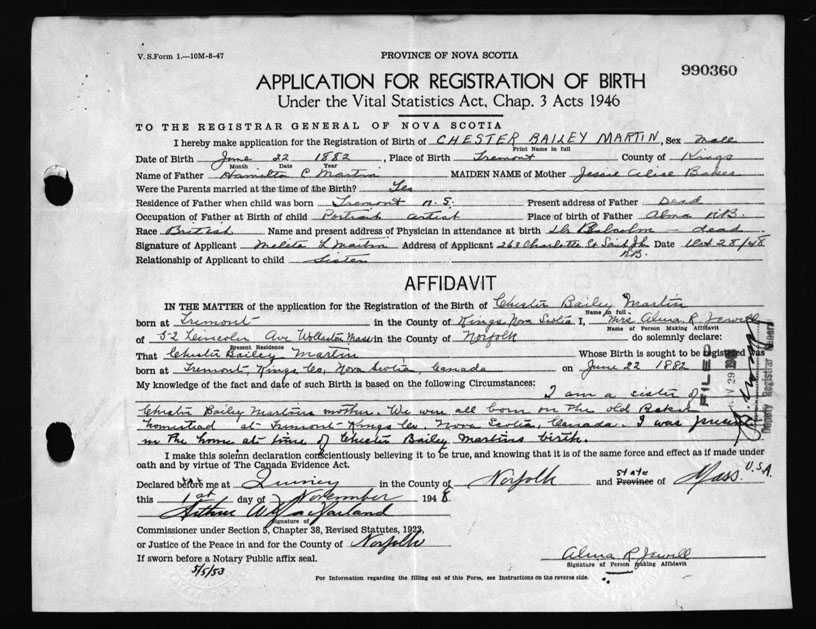 V. S. Form 1.—10M-8-47
PROVINCE OF NOVA SCOTIA
990360
APPLICATION FOR REGISTRATION OF BIRTH
Under the Vital Statistics Act, Chap. 3 Acts 1946
TO THE REGISTRAR GENERAL OF NOVA SCOTIA
I hereby make application for the Registration of Birth of CHESTER BAILEY MARTIN, Sex Male
Print Name in full
Date of Birth June 22 1882, Place of Birth Tremont County of Kings
Month Date Year
Name of Father Hamilton C Martin MAIDEN NAME of Mother Jessie Alise Baker
Were the Parents married at the time of the Birth? Yes
Residence of Father when child was born Tremont N.S. Present address of Father Dead
Occupation of Father at Birth of child Portrait artist Place of birth of Father Alma N.B.
Race British Name and present address of Physician in attendance at birth Dr Balcolm - dead
Signature of Applicant Melita L Martin Address of Applicant 269 Charlotte St Saint John N.B. Date Oct 28/48
Relationship of Applicant to child Sister
AFFIDAVIT
IN THE MATTER of the application for the Registration of the Birth of Chester Bailey Martin
Name in full
born at Tremont in the County of Kings Nova Scotia I, Mrs Alma R. Jewell
Name of Person Making Affidavit
of 52 Lincoln Ave Wollaston Mass in the County of Norfolk do solemnly declare:
Present Residence
That Chester Bailey Martin Whose Birth is sought to be registered was
born at Tremont, Kings Co, Nova Scotia, Canada on June 22 1882
My knowledge of the fact and date of such Birth is based on the following Circumstances:
I am a sister of
Chester Bailey Martins mother. We were all born on the old Baker
homestead at Tremont Kings Co. Nova Scotia, Canada. I was present
in the home at time of Chester Bailey Martins birth.
I make this solemn declaration conscientiously believing it to be true, and knowing that it is of the same force and effect as if made under
oath and by virtue of The Canada Evidence Act.
Declared before me at Quincy in the County of Norfolk and Province State of Mass. U.S.A.
this 1st day of November 1948
Arthur W MacFarland
Signature of
Commissioner under Section 5, Chapter 38, Revised Statutes, 1923,
or Justice of the Peace in and for the County of Norfolk
If sworn before a Notary Public affix seal.
Alma R. Jewell
Signature of Person Making Affidavit
5/5/53
For Information regarding the filling out of this Form, see Instructions on the reverse side.
FILED
NOV 29 19
Deputy Registrar General